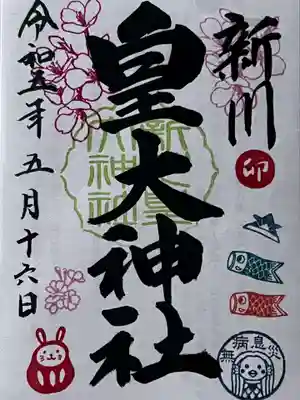 新川
卯
無病息災
皇大神社
新川皇大神社
令和五年五月十六日